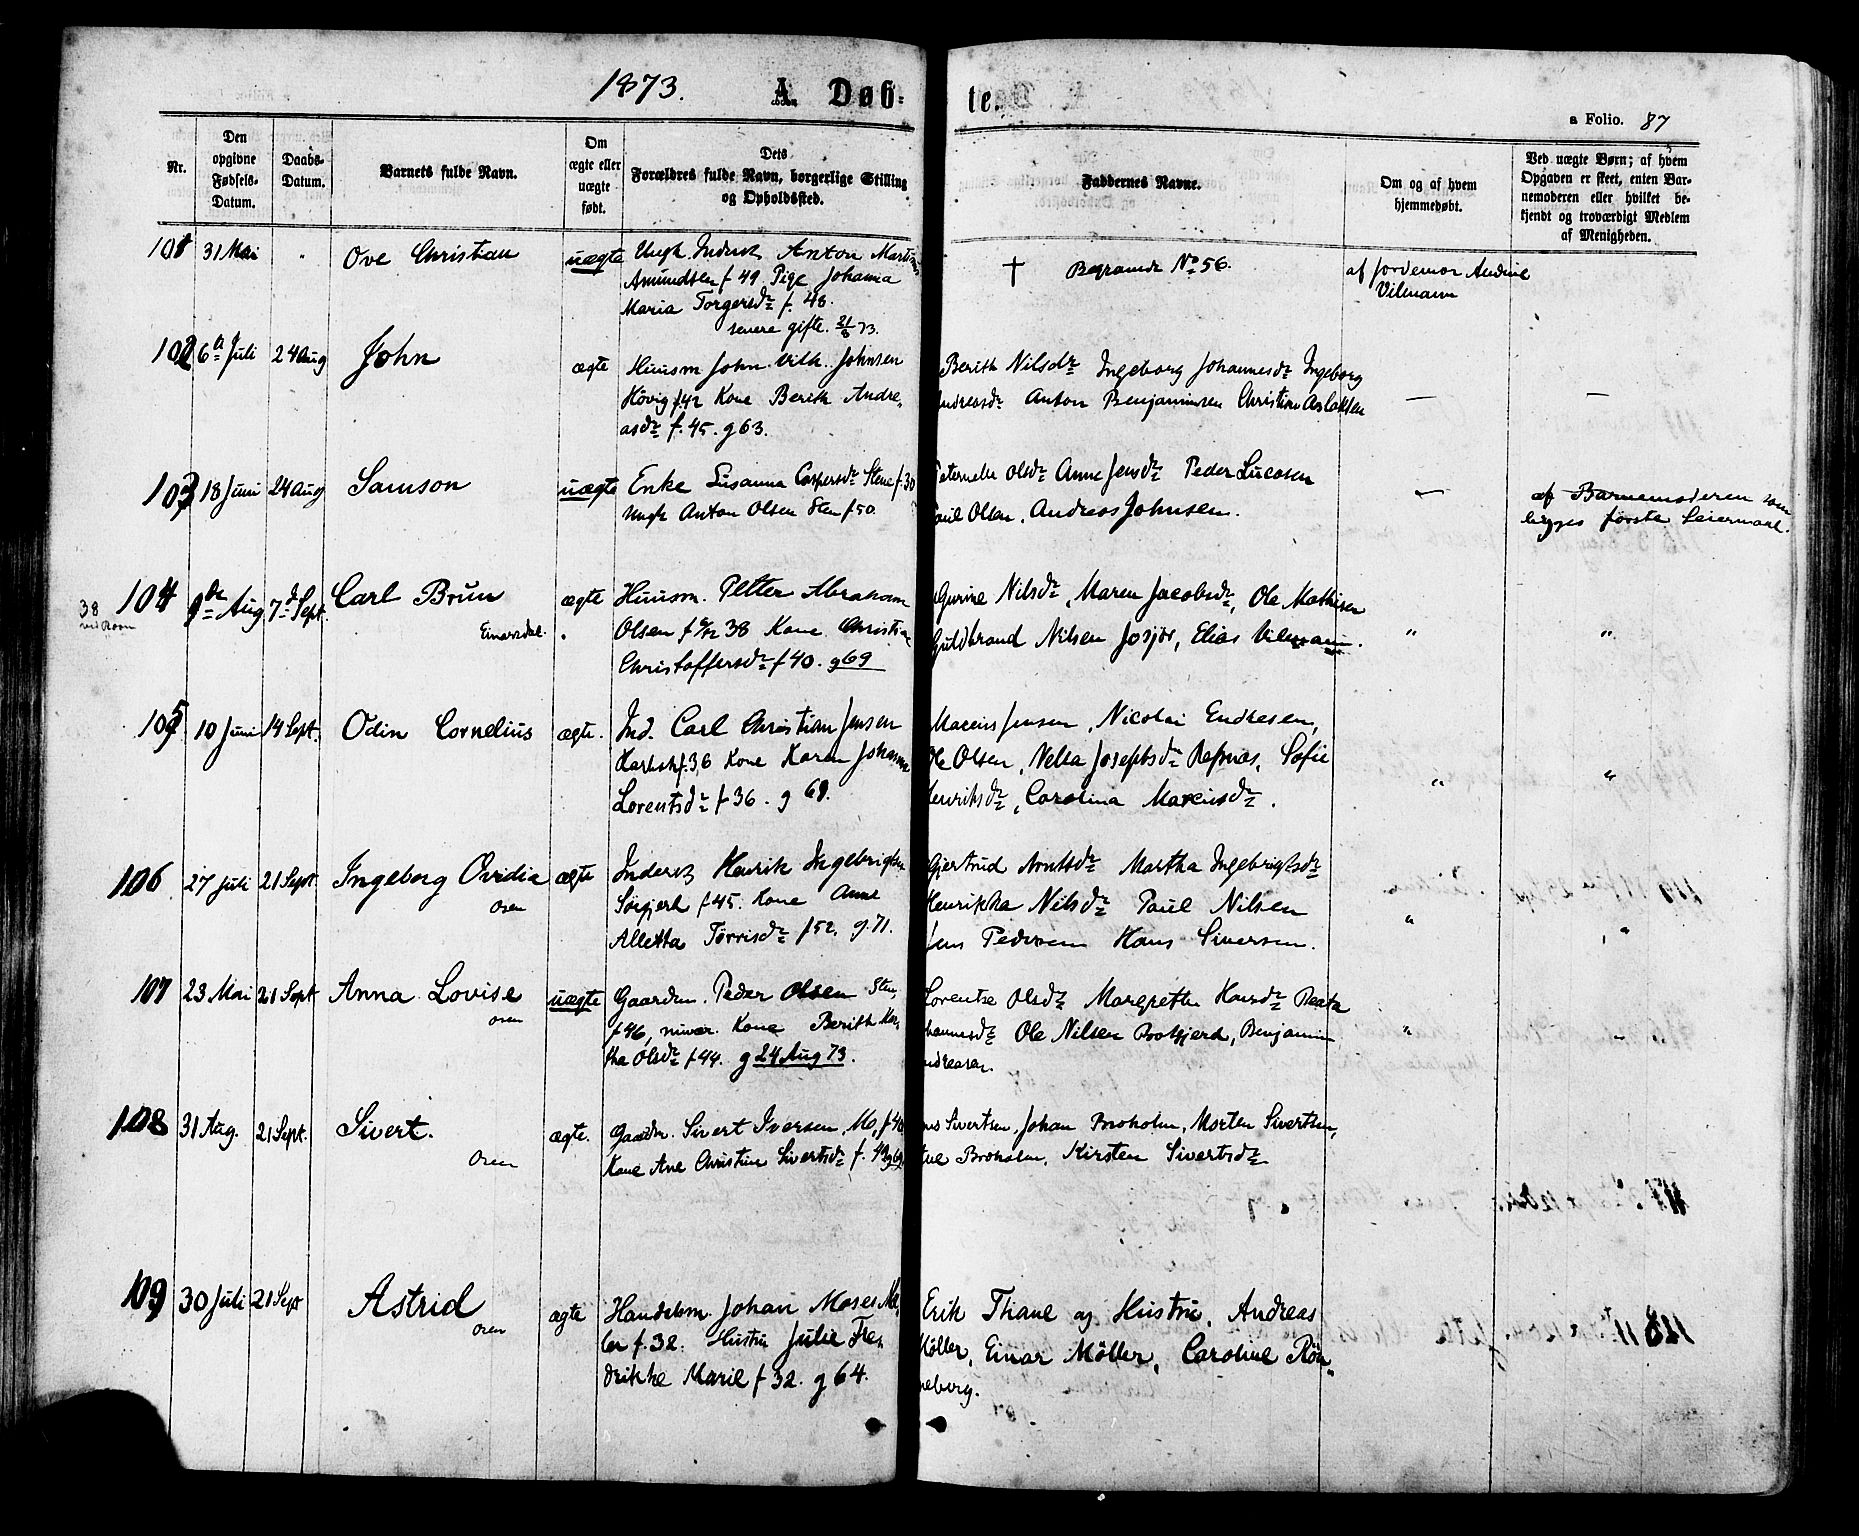 1873. A. Døb-
te.
a Folio. 87
Nr.
Den
opgivne
Fødsels-
Datum.
Daabs-
Datum.
Barnets fulde Navn.
Om
ægte eller
uægte
født.
Dets
Forældres fulde Navn, borgerlige Stilling
og Opholdssted.
Faddernes Navne.
Om og af hvem
hjemmedøbt.
Ved uægte Børn; af hvem
Opgaven er skeet, enten Bar-
nemoderen eller hvilket be-
kjendt og troværdigt Medlem
af Menigheden.
101 31 Mai " Ove Christian uægte Ungk. Inderst Anton
Amundsen f 49 Pige Johanna
Maria Torgersdr f. 48.
senere gifte. 21/8 73.
† Begravede No 56.
af Jordemor Andrine
Vilmann
102 6te Juli 24 Aug John ægte Huusm John Vilh. Johnsen
Hövig f.42 Kone Berith Andre,
asdr f. 45. g 63.
Berith Nilsdr Ingeborg Johannesdr Ingeborg
Andreasdr Anton Benjaminsen Christian Aslaksen — —
103 18 Juni 24 Aug Samson uægte Enke Susanna Caspersdr Stene f. 30
Ungk Anton Olsen Sten f 50.
Peternelle Olsdr Anne Jensdr Peder Lucasen
Poul Olsen, Andreas Johnsen. —
af Barnemoderen som
begges første Leiermaal.
104 9de Aug 7de Sept. Carl Brun ægte Huusm. Petter Abraham
38
ved Roen
Einarsdal.
Olsen f 9/12 38 Kone Christi
Christoffersdr f 40. g 69
Gurine Nilsdr, Maren Jacobsdr, Ole Mathisen
Guldbrand Nilsen Josjor, Elias Vilmann. " "
105 10 Juni 14 Sept. Odin Cornelius ægte. Ind. Carl Christian Jensen
f.36 Kone Karen Johanna
Lorentsdr f 36. g 69.
Marcus Jensen, Nicolai Endresen,
Ole Olsen, Nella Josephsdr Refsnes, Sofie
Henriksdr, Carolina Marcusdr. " "
106 27 Juli 21 Sept. Ingeborg Ovidia ægte Inderst Henrik Ingebrigtsen
Osen
Sørgjerd f 45. Kone Anne
Alletta Tørrisdr f 52. g. 71.
Gjertrud Arntsdr Martha Ingebrigtsdr
Henrikka Nilsdr Paul Nilsen
Jens Pedersen Hans Siversen. " "
107 23 Mai 21 Sept Anna Lovise uægte Gaardm. Peder Olsen Sten,
Osen
f 46, nuvær. Kone Berith Mar,
tha Olsdr f 44. g 24 Aug 73.
Lorentse Olsdr Margrethe Hansdr Beata
Johannesdr Ole Nilsen Brotgjerd, Benjamin
Andreasen. " "
108 31 Aug. 21 Sept. Sivert. ægte. Gaardm. Sivert Iversen, Mo, f 40
Osen
Kone Ane Christine Sivertsdr f. 49 g 69
Sivertsen, Johan Broholm, Morten Sivertsen,
Broholm, Kirsten Sivertsdr
109 30 Juli 21 Sept Astrid ægte Handelsm. Johan Moses Møl,
Osen
ler f. 32. Hustru Julie Fre,
drikke Marie f 32. g 64.
Erik Thane og Hustru, Andreas
Möller, Einar Möller, Caroline Rön,
neberg.